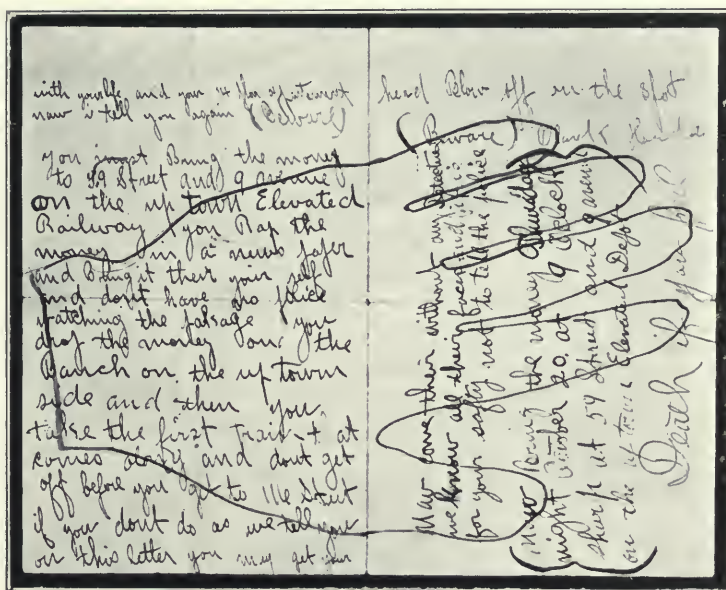 with your life and your
now i tell you again (Beware)
you must Bring the money
to 59 Street and 9 avenue
on the up town Elevated
Railway you Rap the
money in a news paper
and Bring it their your self
and dont have no police
watching the pasage you
drop the money on the
Banch on the uptown
side and then you
take the first Train t at
comes along and dont get
off before you get to 116 Street
if you dont do as we tell you
on this letter you may get your
head Below off on the spot
(Beware) Hand
Now come their without any Detectives
we know all their faces and it is
for your safty not to tell the police
(Now Bring the money Thursday
night October 20 at 9 oclock
sharp at 59 Street and 9 avenue
on the up town Elevated Depo)
Death if you